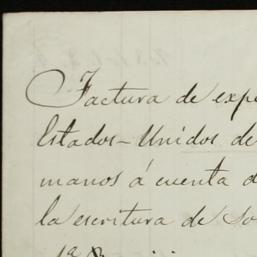 Factura de expe
Estados-Unidos de
manos á cuenta d
la escritura de So